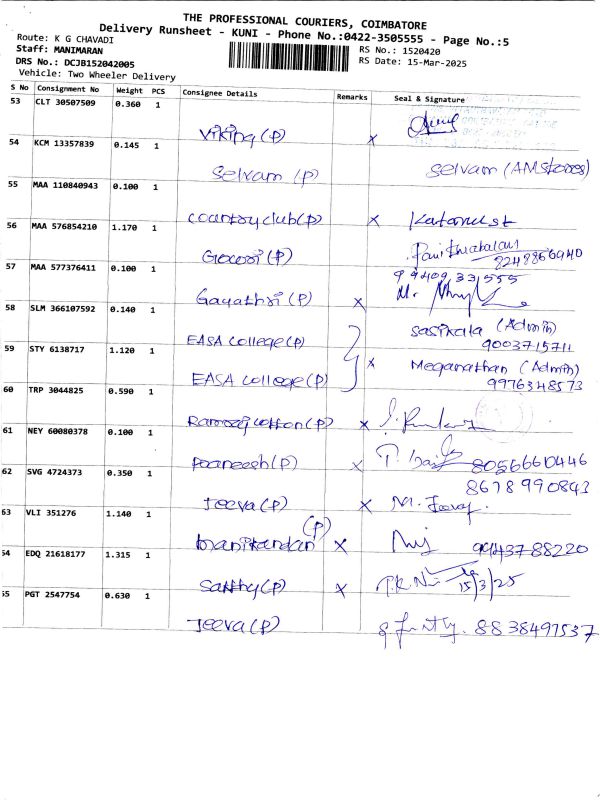 THE PROFESSIONAL COURIERS, COIMBATORE
Delivery Runsheet - KUNI - Phone No.:0422-3505555 - Page No.:5
Route: K G CHAVADI
RS No.: 1520420
Staff: MANIMARAN
RS Date: 15-Mar-2025
DRS No.: DCJB152042005
Vehicle: Two Wheeler Delivery
S No Consignment No Weight PCS Consignee Details Remarks Seal & Signature
53 CLT 30507509 0.360 1
Viking (P) x
54 KCM 13357839 0.145 1
Selvam (P) Selvam (AMstores)
55 MAA 110840943 0.100 1
Country club (P) x
56 MAA 576854210 1.170 1
Gowri (P)
57 MAA 577376411 0.100 1 99409 33 555
Gayathri (P) x
58 SLM 366107592 0.140 1
EASA College (P) Sasikala (Admin)
9003715711
59 STY 6138717 1.120 1
EASA College (P) x Meganathan (Admin)
9976348573
60 TRP 3044825 0.590 1
Ramraj Cotton (P) x
61 NEY 60080378 0.100 1
(P) x 8056660446
62 SVG 4724373 0.350 1 8678990843
Jeeva (P) x
63 VLI 351276 1.140 1
Manikandan (P) x 9943788220
54 EDQ 21618177 1.315 1
Santhy (P) x 15/3/25
55 PGT 2547754 0.630 1
Jeeva (P) 8838497537